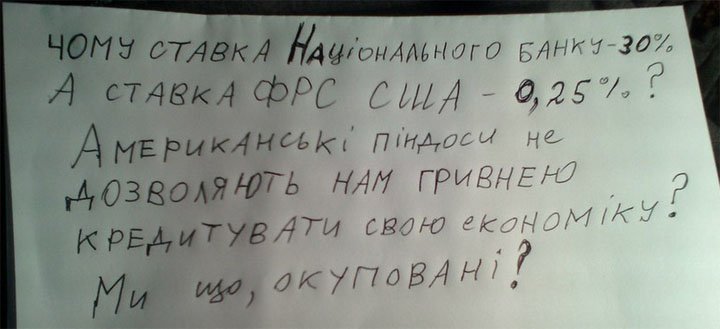 Чому ставка Національного банку - 30%
А ставка ФРС США - 0,25%?
Американські піндоси не
дозволяють нам гривнею
кредитувати свою економіку?
Ми що, окуповані?